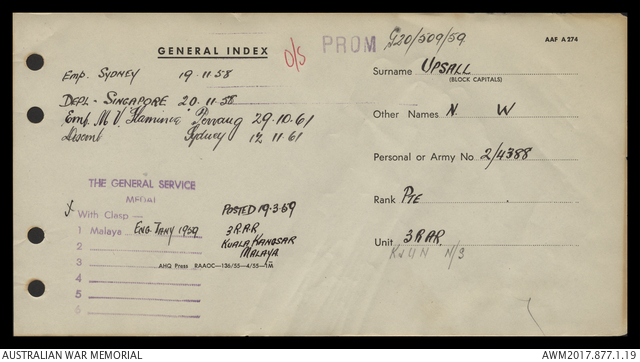 GENERAL INDEX
O/S
PROM
G20/509/59
AAF A274
Emp. SYDNEY 19.11.58
DEPL - SINGAPORE 20.11.58
Emb. M.V. Flaminia Penang 29.10.61
Disemb Sydney 12.11.61
Surname UPSALL
(BLOCK CAPITALS)
Other Names N. W
Personal or Army No 2/4388
Rank PTE
Unit 3RAR
N/S
THE GENERAL SERVICE
MEDAL
X With Clasp —
1 Malaya ENG. JANY 1959
2
3
4
5
6
POSTED 19.3.59
3RAR
KUALA KANGSAR
MALAYA
AHQ Press RAAOC—136/55—4/55—1M
AUSTRALIAN WAR MEMORIAL
AWM2017.877.1.19